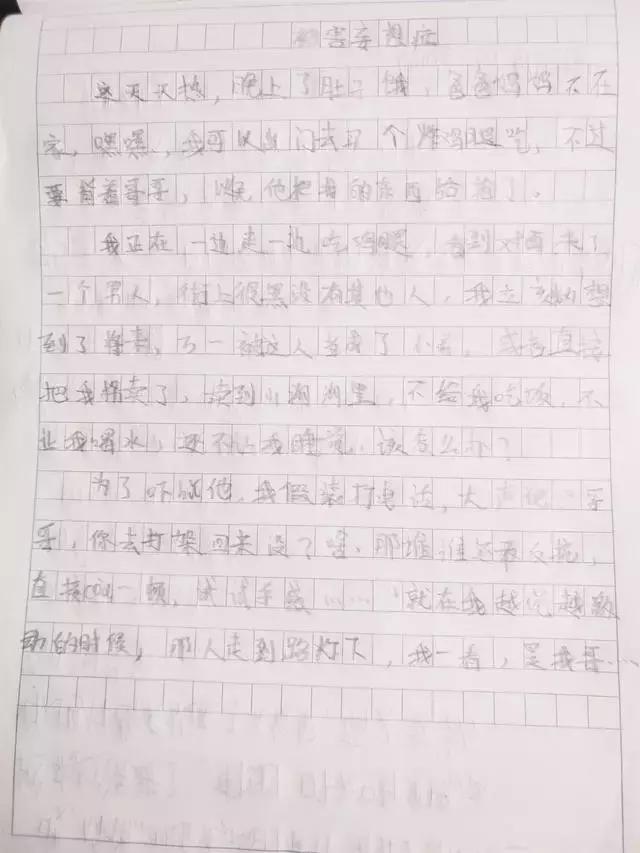 害妄想症
天热，晚上了肚子饿，爸爸妈妈不在
家，嘿嘿，我可以出门去买个炸鸡腿吃，不过
要背着哥哥，他把我的东西给抢了。
我正在一边走一边吃鸡腿，看到对面来了
一个男人，街上很黑没有其他人，我立刻就想
到了拐卖，万一被这人当成了小孩，或者直接
把我拐卖了，卖到山沟沟里，不给我吃饭，不
让我喝水，还不让我睡觉，该怎么办？
为了吓唬他，我假装打电话，大声他：哥
哥，你去打架回来没？喔，那堆谁还敢反抗，
直接cou一顿，试试手感……就在我越说越激
动的时候，那人走到路灯下，我一看，是我哥…